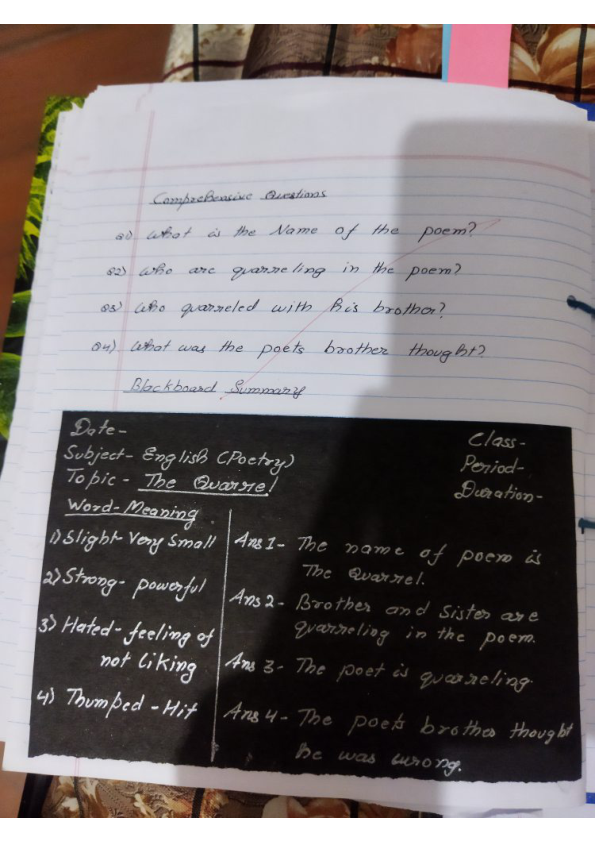 Comprehensive Questions
Q1) What is the Name of the poem?
Q2) Who are quarreling in the poem?
Q3) Who quarreled with his brother?
Q4) What was the poets brother thought?
Blackboard Summary
Date-
Class-
Subject- English (Poetry)
Period-
Topic- The Quarrel
Duration-
Word-Meaning
1) Slight- Very Small
2) Strong- powerful
3) Hated- feeling of
not liking
4) Thumped - Hit
Ans 1- The name of poem is
The Quarrel.
Ans 2- Brother and Sister are
quarreling in the poem.
Ans 3- The poet is quarreling.
Ans 4- The poets brother thought
he was wrong.